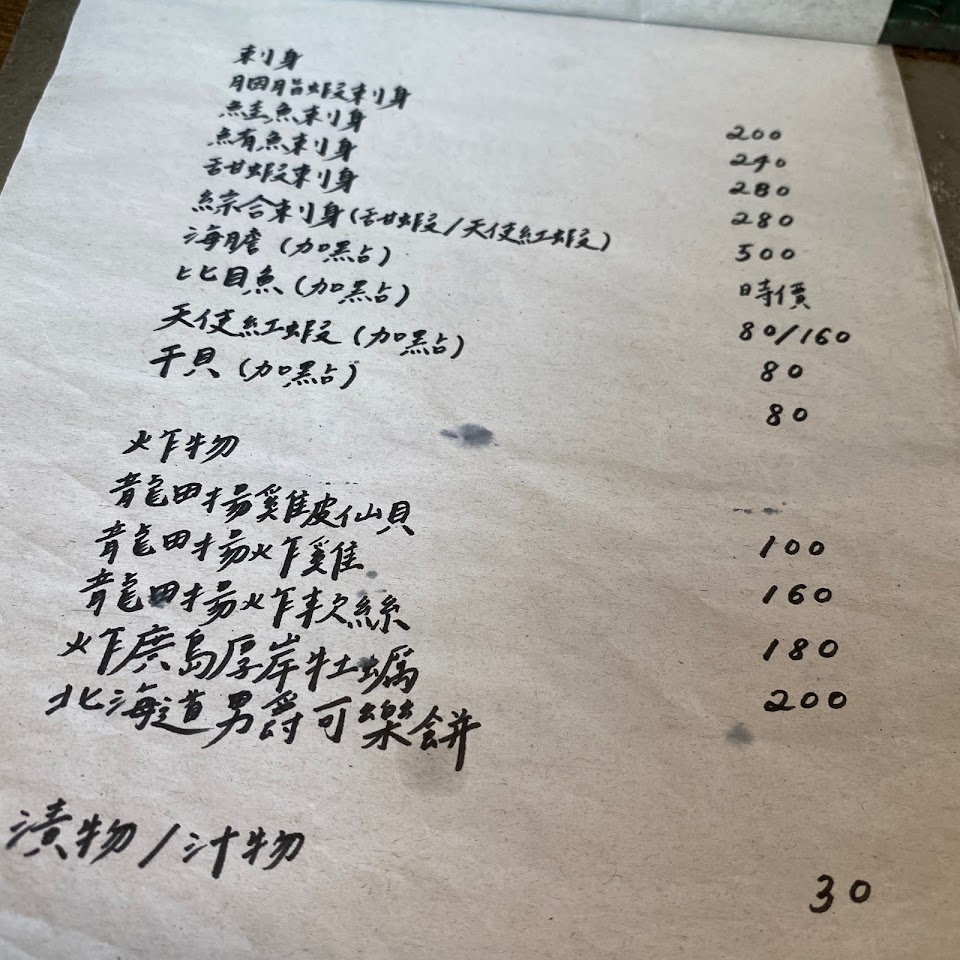 刺身
胭脂蝦刺身 200
鮭魚刺身 240
鮪魚刺身 280
甜蝦刺身 280
綜合刺身(甜蝦/天使紅蝦) 500
海膽(加點) 時價
比目魚(加點) 80/160
天使紅蝦(加點) 80
干貝(加點) 80
炸物
龍田揚雞皮仙貝 100
龍田揚炸雞 160
龍田揚炸軟絲 180
炸廣島厚岸牡蠣 200
北海道男爵可樂餅
漬物/汁物 30